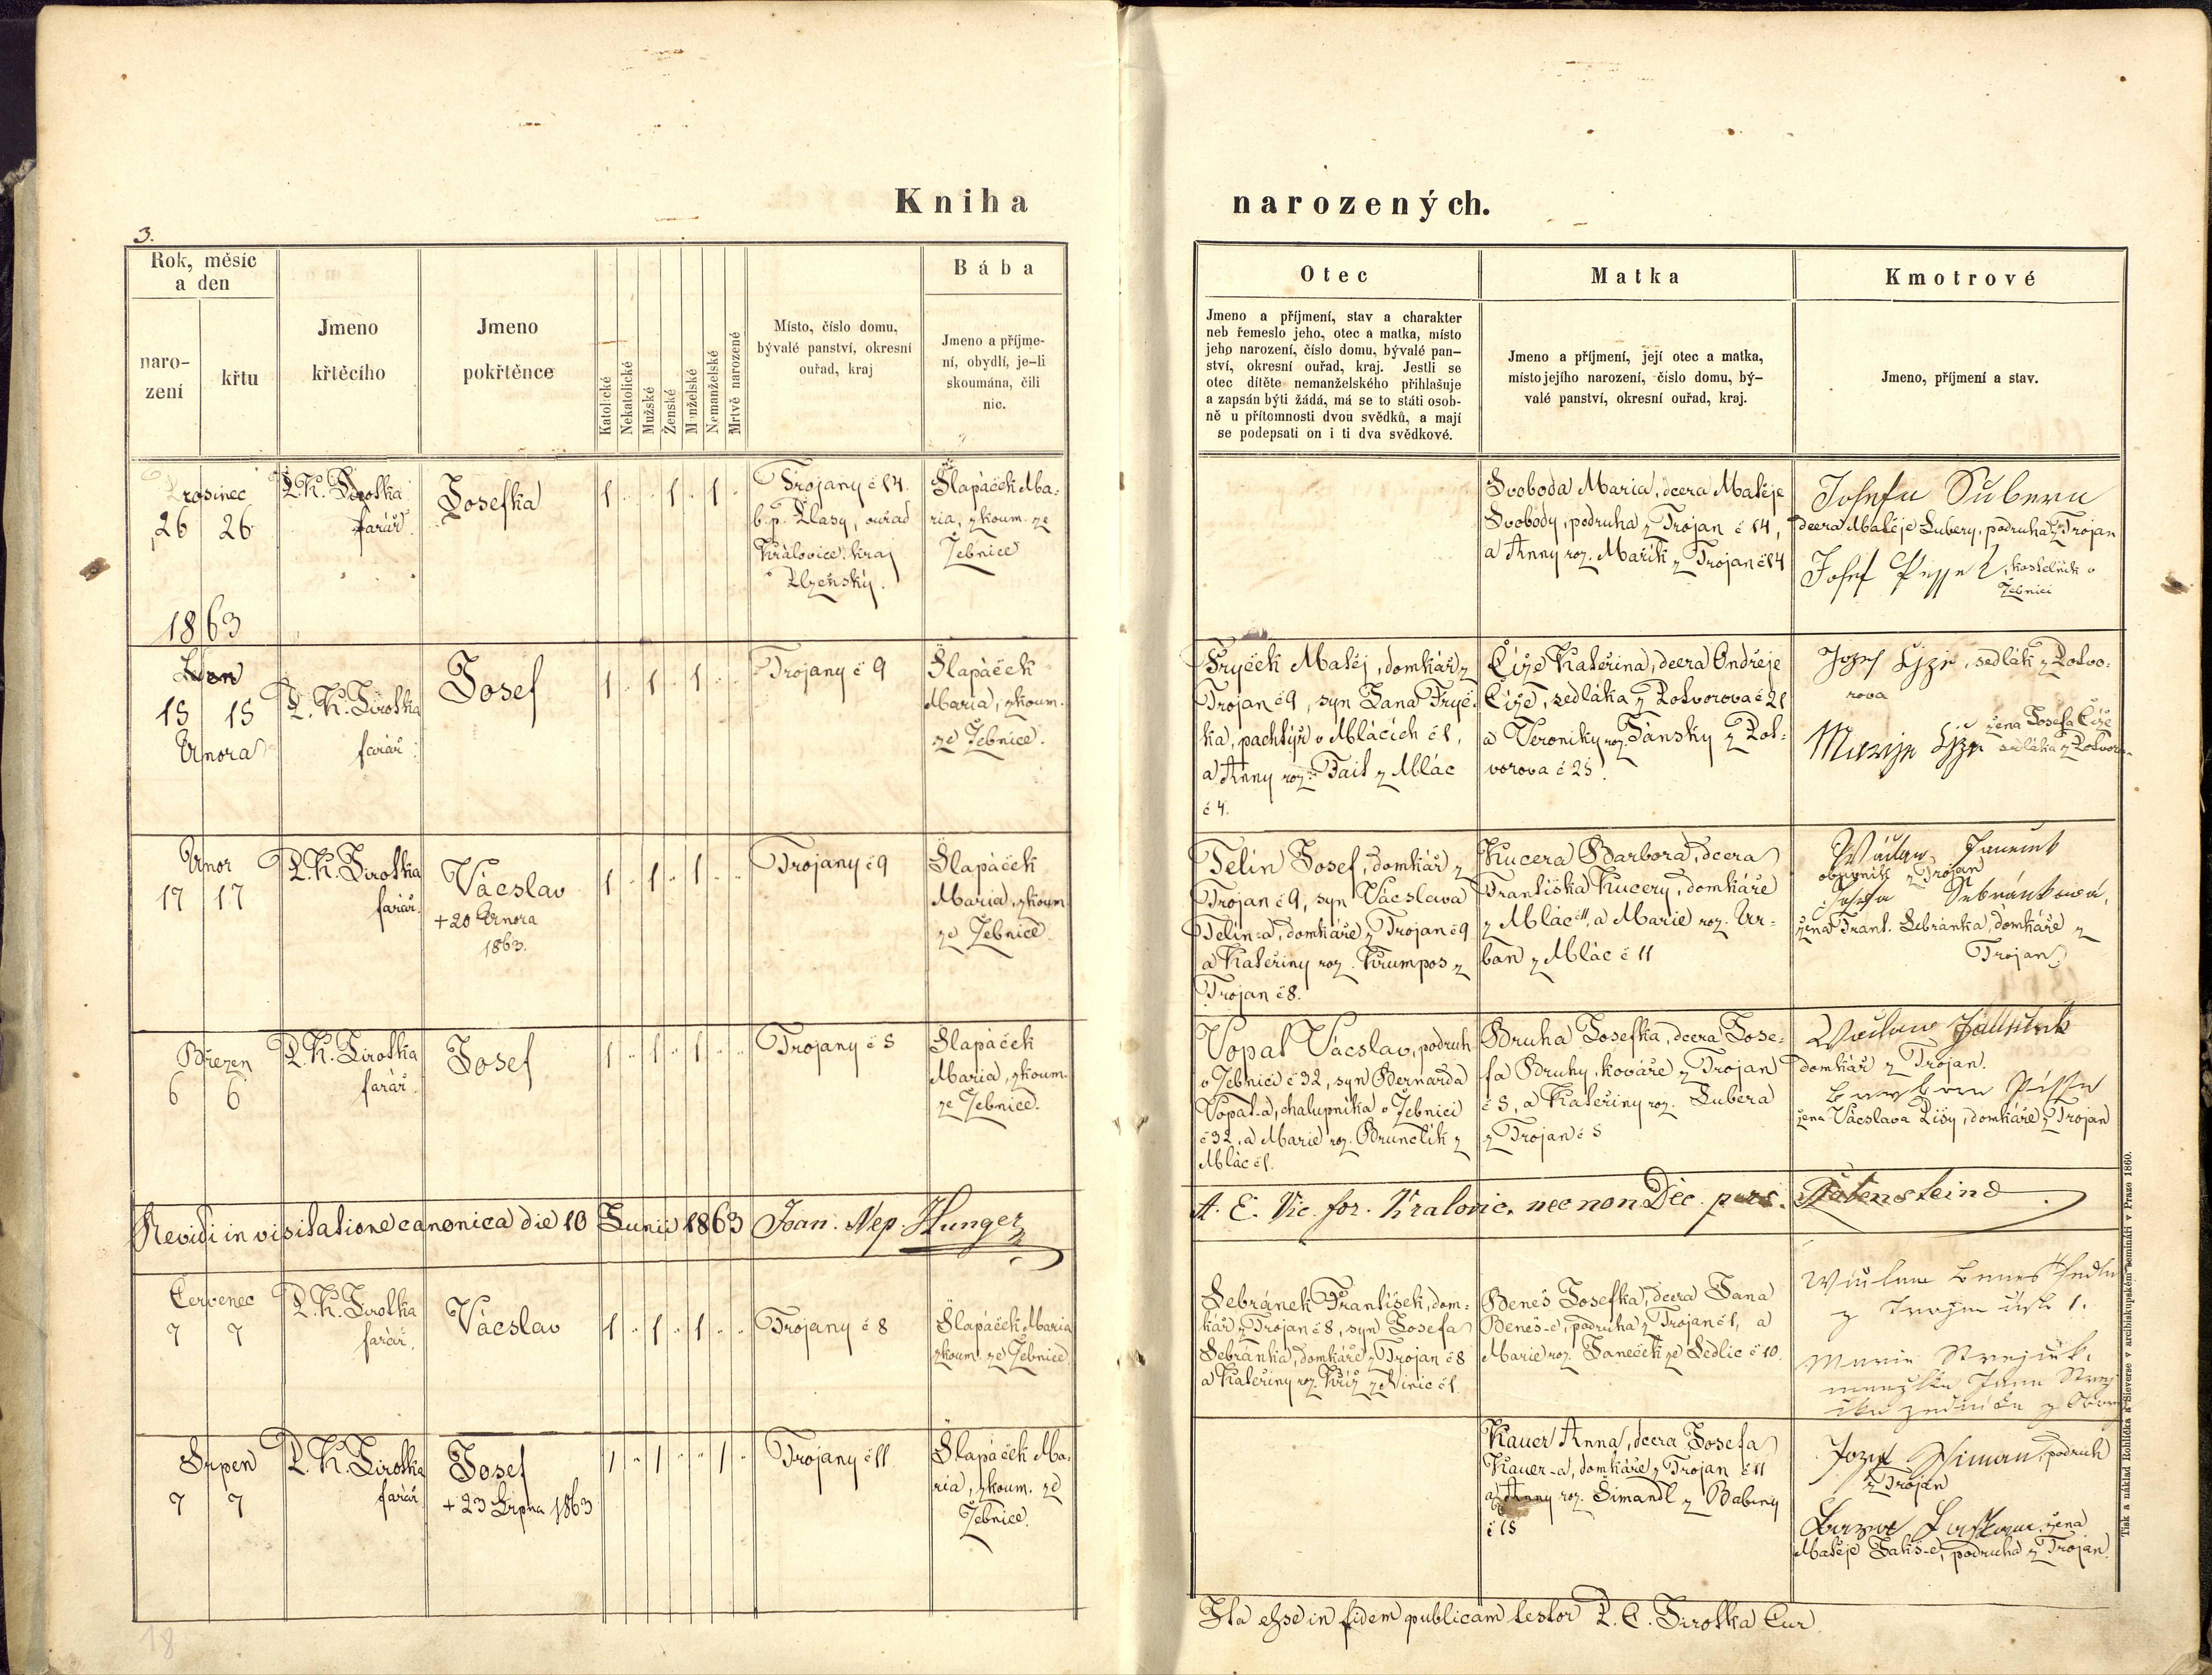 Kniha
narozených.
3.
Rok, měsíc
a den
naro-
zení
křtu
Jmeno
křtěcího
Jmeno
pokřtěnce
Katolické
Nekatolické
Mužské
Ženské
Manželské
Nemanželské
Mrtvě narozené
Místo, číslo domu,
bývalé panství, okresní
ouřad, kraj
Bába
Jmeno a příjme-
ní, obydlí, je-li
skoumána, čili
nic.
Otec
Jmeno a příjmení, stav a charakter
neb řemeslo jeho, otec a matka, místo
jeho narození, číslo domu, bývalé pan-
ství, okresní ouřad, kraj. Jestli se
otec dítěte nemanželského přihlašuje
a zapsán býti žádá, má se to státi osob-
ně u přítomnosti dvou svědků, a mají
se podepsati on i ti dva svědkové.
Matka
Jmeno a příjmení, její otec a matka,
místo jejího narození, číslo domu, bý-
valé panství, okresní ouřad, kraj.
Kmotrové
Jmeno, příjmení a stav.
Prosinec
26 26
P. K. Sirotka
farář.
Josefka
1 1 1
Trojany č 14.
b. p. Plasy, ouřad
Kralovice. kraj
Plzeňský.
Šlapáček Ma-
ria, zkoum. ze
Žebnice
Svoboda Maria, dcera Matěje
Svobody, podruha z Trojan č 14,
a Anny roz. Mařík z Trojan č 14
Josefa Subera
dcera Matěje Subery, podruha z Trojan
Josef kostelník v
Žebnici
1863
15 15
Února
P. K. Sirotka
farář.
Josef
1 1 1
Trojany č 9
Šlapáček
Maria, zkoum.
ze Žebnice.
Fryček Matěj, domkář z
Trojan č 9, syn Jana Fryč-
ka, pachtýř v Mlácích č 1,
a Anny roz. Tait z Mlác
č 4.
Číže Kateřina, dcera Ondřeje
Číže, sedláka z Potvorova č 21
a Veroniky roz. Jánsky z Pot-
vorova č 25.
Jozef Czje, sedlák z Potvo-
rova
Marije Czje žena Josefa Číže
sedláka z Potvoro-
Únor
17 17
P. K. Sirotka
farář.
Václav
+ 20 Února
1863.
1 1 1
Trojany č 9
Šlapáček
Maria, zkoum.
ze Žebnice.
Telín Josef, domkář z
Trojan č 9, syn Václava
Telín-a, domkáře z Trojan č 9
a Kateřiny roz. Krumpos z
Trojan č 8.
Kucera Barbora, dcera
Františka Kucery, domkáře
z Mlác č 11, a Marie roz. Ur-
ban z Mlác č 11
z Trojan
Sebránková,
žena Frant. Sebránka, domkáře z
Trojan
Březen
6 6
P. K. Sirotka
farář.
Josef
1 1 1
Trojany č 5
Šlapáček
Maria, zkoum.
ze Žebnice.
Vopat Václav, podruh
v Žebnici č 32, syn Bernarda
Vopat-a, chalupníka v Žebnici
č 32, a Marie roz. Brunclík z
Mlác č 1.
Bruha Josefka, dcera Jose-
fa Bruhy, kováře z Trojan
č 5, a Kateřiny roz. Subera
z Trojan č 5
domkář z Trojan.
žena Václava Píšy, domkáře z Trojan
Revidi in visitatione canonica die 10 Junii 1863 Joan. Nep. Hunger
A. E. Vic. for. Kralovic. nec non Dec. pers. Rabensteind.
Červenec
7 7
P. K. Sirotka
farář.
Václav
1 1 1
Trojany č 8
Šlapáček Maria
zkoum. ze Žebnice
Sebránek František, dom-
kář z Trojan č 8, syn Josefa
Sebránka, domkáře z Trojan č 8
a Kateřiny roz. Kříž z Vinic č 1.
Beneš Josefka, dcera Jana
Beneš-e, podruha z Trojan č 1, a
Marie roz. Janeček ze Sedlic č 10.
z Trojan 1.
Marie
Srpen
7 7
P. K. Sirotka
farář
Josef
+ 23 Srpna 1863
1 1 1
Trojany č 11
Šlapáček Ma-
ria, zkoum. ze
Žebnice.
Kauer Anna, dcera Josefa
Kauer-a, domkáře z Trojan č 11
a Anny roz. Šimandl z Babiny
č 15
Jozef podruh
z Trojan
žena
Matěje Jakš-e, podruha z Trojan.
Ita esse in fidem publicam testor P. C. Sirotka Cur.
18
Tisk a náklad Rohlíčka a Sieverse v arcibiskupském semináři v Praze 1860.